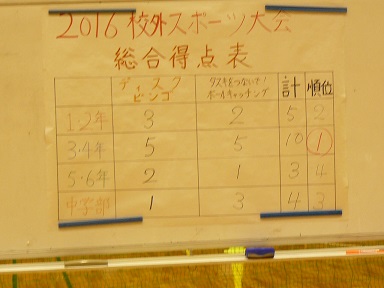 2016 校外スポーツ大会
総合得点表
ディスクビンゴ タスキをつないで!ボールキャッチング 計 順位
1・2年 3 2 5 2
3・4年 5 5 10 1
5・6年 2 1 3 4
中学部 1 3 4 3